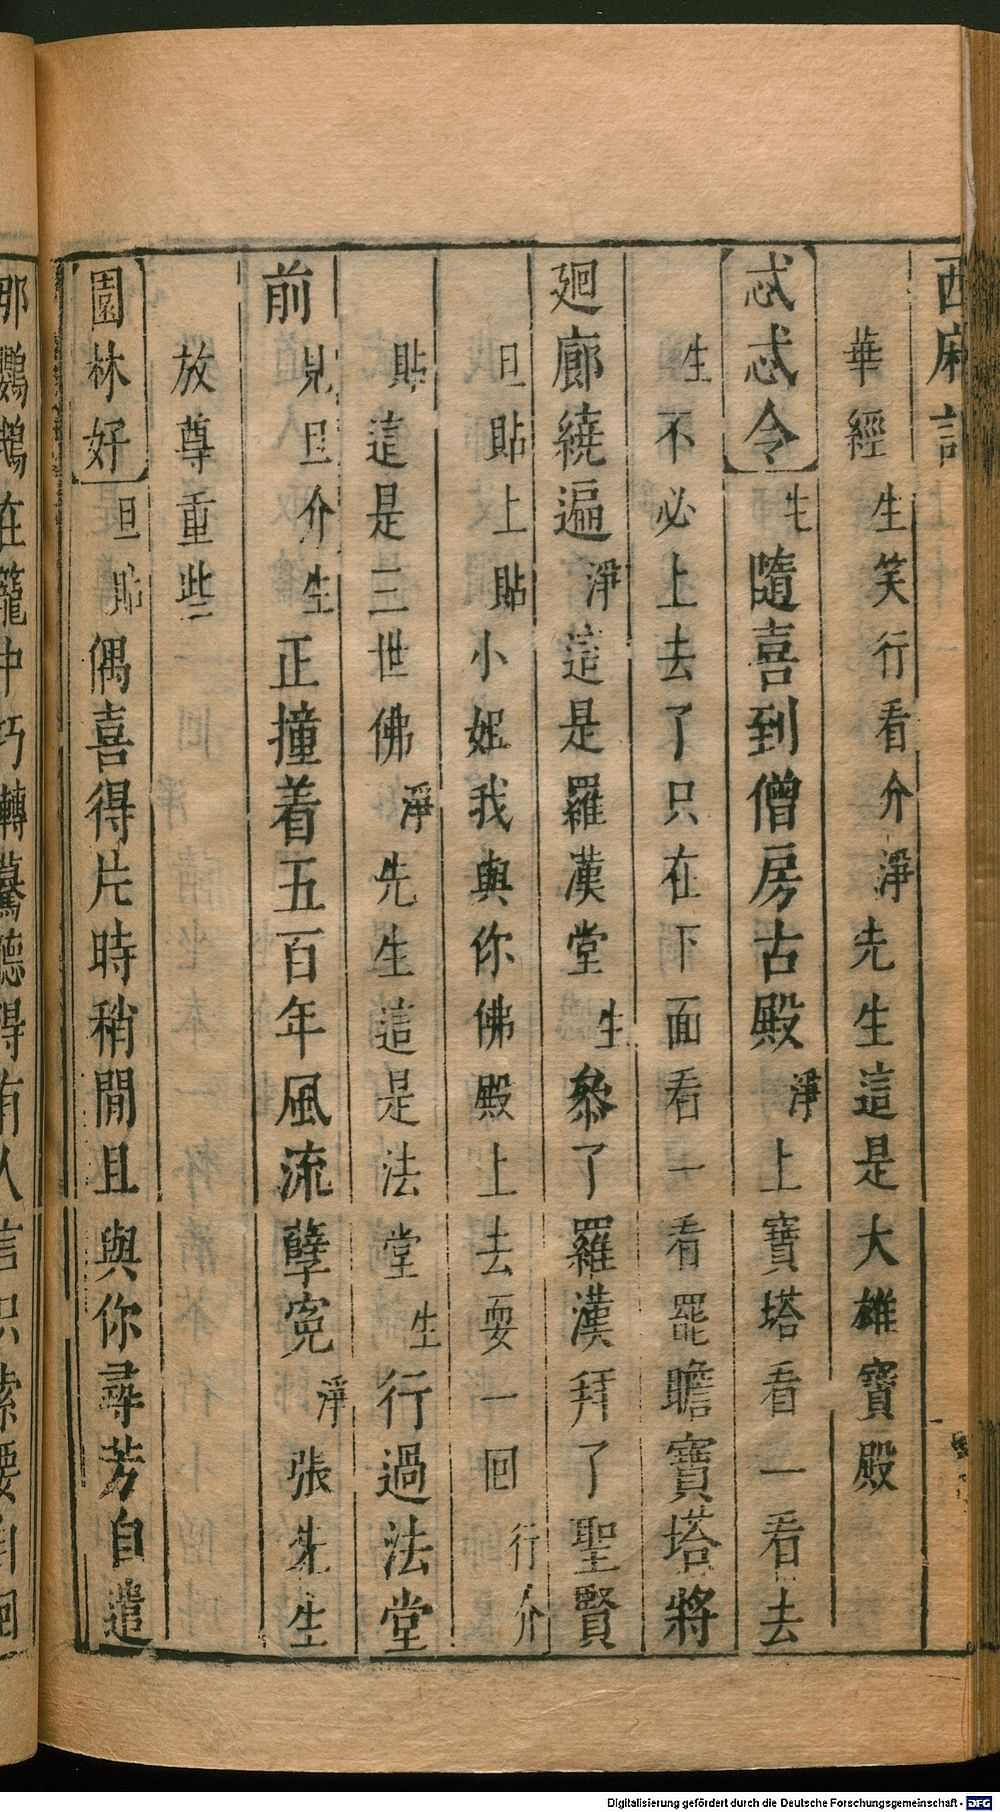 西廂記
華經生笑行看介淨先生這是大雄寶殿
忒忒令生隨喜到僧房古殿淨上寶塔看一看去
生不必上去了只在下面看一看罷瞻寶塔將
廻廊繞遍淨這是羅漢堂生參了羅漢拜了聖賢
旦貼上貼小姐我與你佛殿上去耍一回行介
貼這是三世佛淨先生這是法堂生行過法堂
前見旦介生正撞着五百年風流孽寃淨張先生
放尊重些
園林好旦貼偶喜得片時稍閒且與你尋芳自遣
那鸚鵡在籠中巧轉驀聽得有人言只索腰自
Digitalisierung gefördert durch die Deutsche Forschungsgemeinschaft - DFG